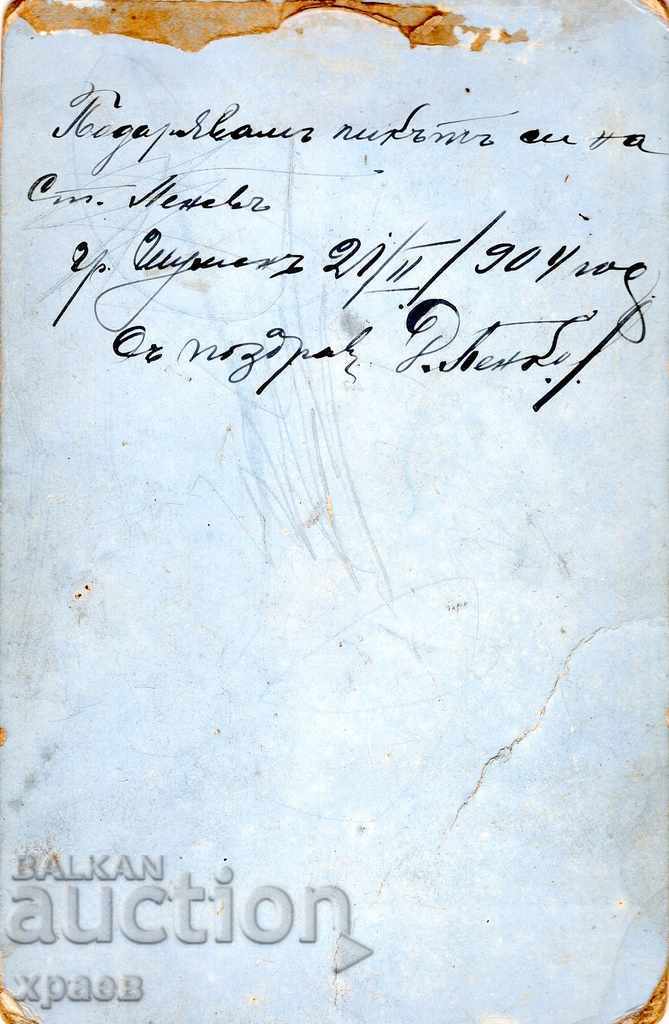 Подарявамъ ликътъ си на
Ст. Леневъ
гр. Шуменъ 21/II/904 год
Съ поздрав
BALKAN
auction
храов